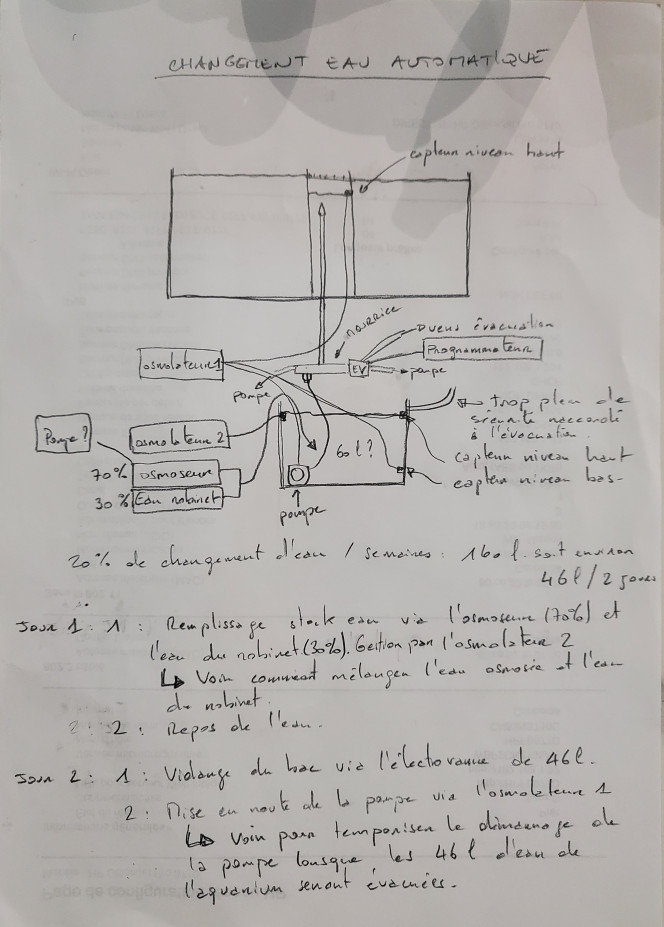 CHANGEMENT EAU AUTOMATIQUE
capteur niveau haut
nourrice
vers évacuation
osmolateur 1
Programmateur
EV
pompe
pompe
trop plein de
sécurité raccordé
à l'évacuation.
Pompe ?
osmolateur 2
60 l ?
capteur niveau haut
70% osmoseur
capteur niveau bas.
30% Eau robinet
pompe
20% de changement d'eau / semaines : 160 l. soit environ
46 l / 2 jours
Jour 1 : 1 : Remplissage stock eau via l'osmoseur (70%) et
l'eau du robinet (30%). Gestion par l'osmolateur 2
↳ Voir comment mélanger l'eau osmosée et l'eau
du robinet.
2 : Repos de l'eau.
Jour 2 : 1 : Vidange du bac via l'électrovanne de 46 l.
2 : Mise en route de la pompe via l'osmolateur 1
↳ Voir pour temporiser le démarrage de
la pompe lorsque les 46 l d'eau de
l'aquarium seront évacuées.